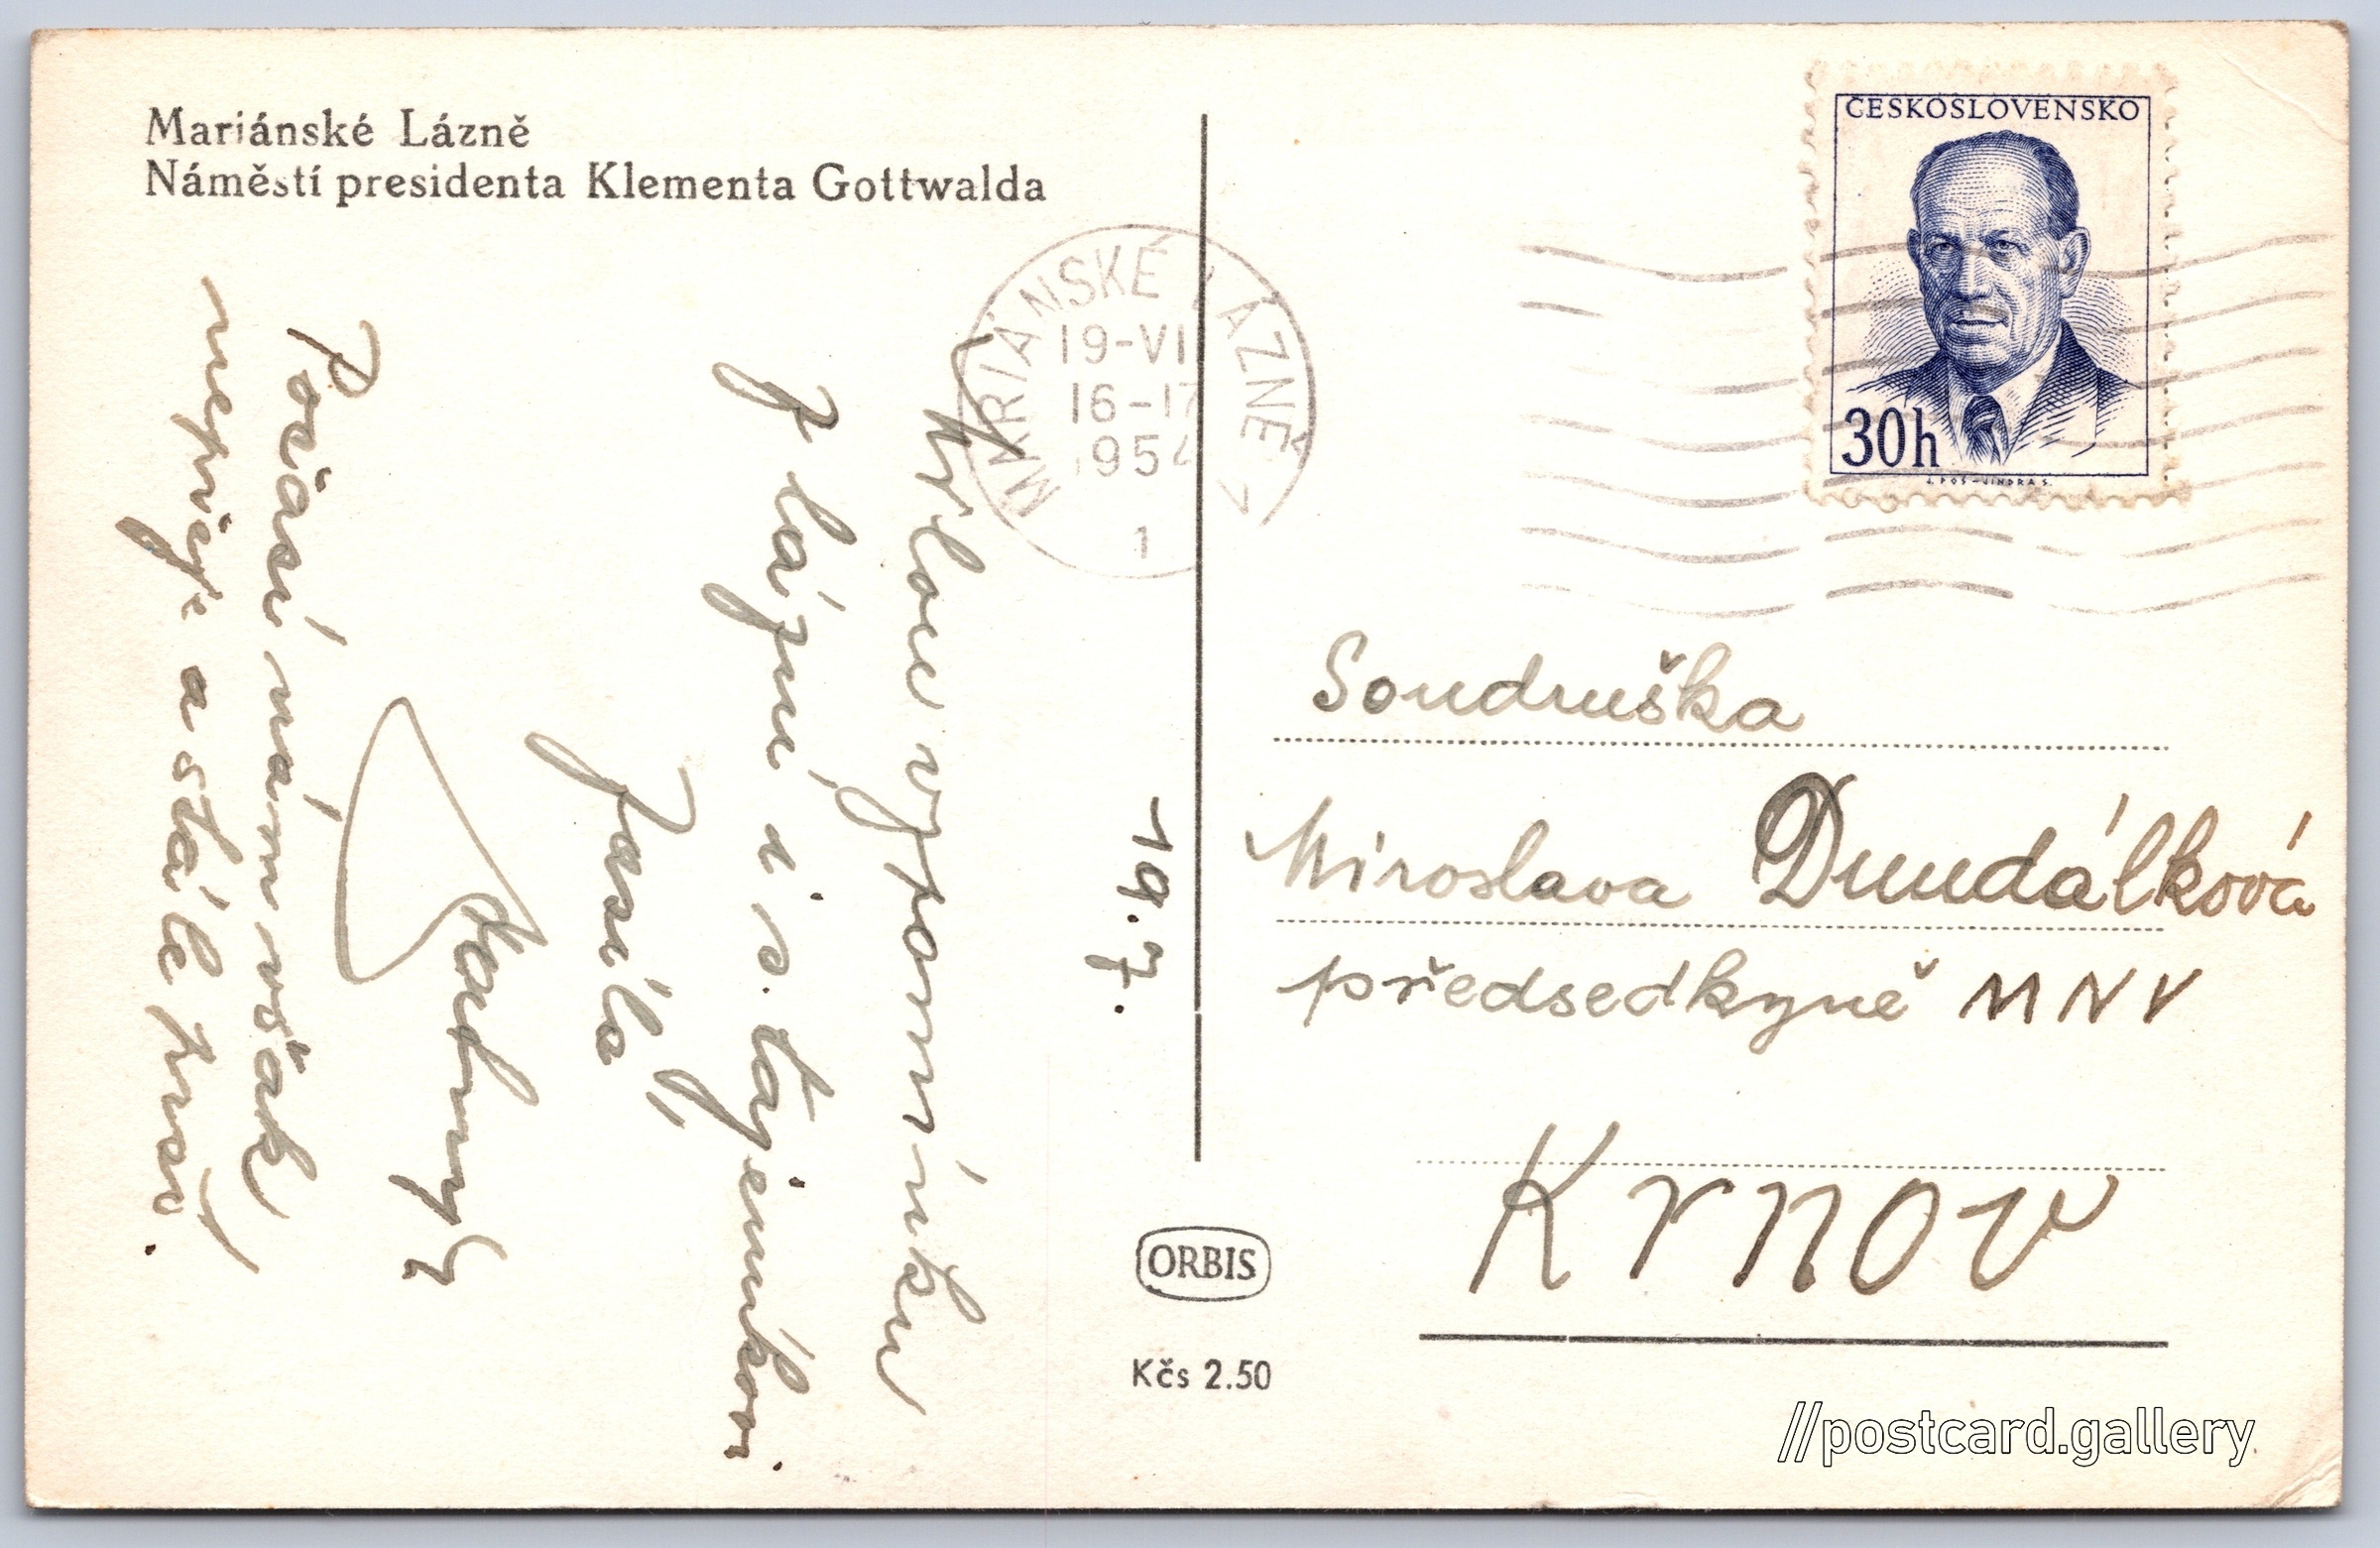 Mariánské Lázně
Náměstí presidenta Klementa Gottwalda
ČESKOSLOVENSKO
30h
J. POS - JINDRA S.
MARIÁNSKÉ LÁZNĚ
19-VI
16-17
1954
1
19.7.
Milou vzpomínku
z lázní i s. tajemníkovi
zasílá
Počasí nám však
nepřeje a stále prší.
Soudruška
Miroslava Dundálková
předsedkyně MNV
Krnov
ORBIS
Kčs 2.50
//postcard.gallery